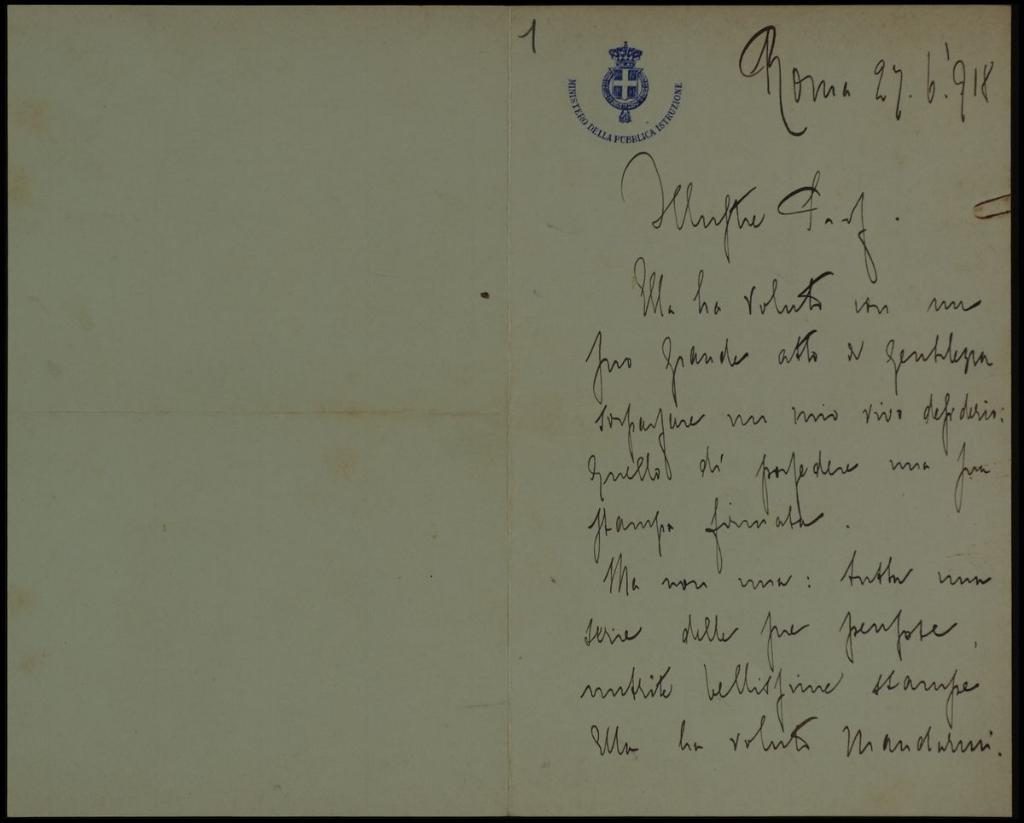 1
MINISTERO DELLA PUBBLICA ISTRUZIONE
Roma 27.6.918
Illustre Prof.
Ella ha voluto con un
suo grande atto di gentilezza
sorpassare un mio vivo desiderio:
quello di possedere una sua
stampa firmata.
Ma non una: tutta una
serie delle sue pensose,
nutrite bellissime stampe
Ella ha voluto mandarmi.